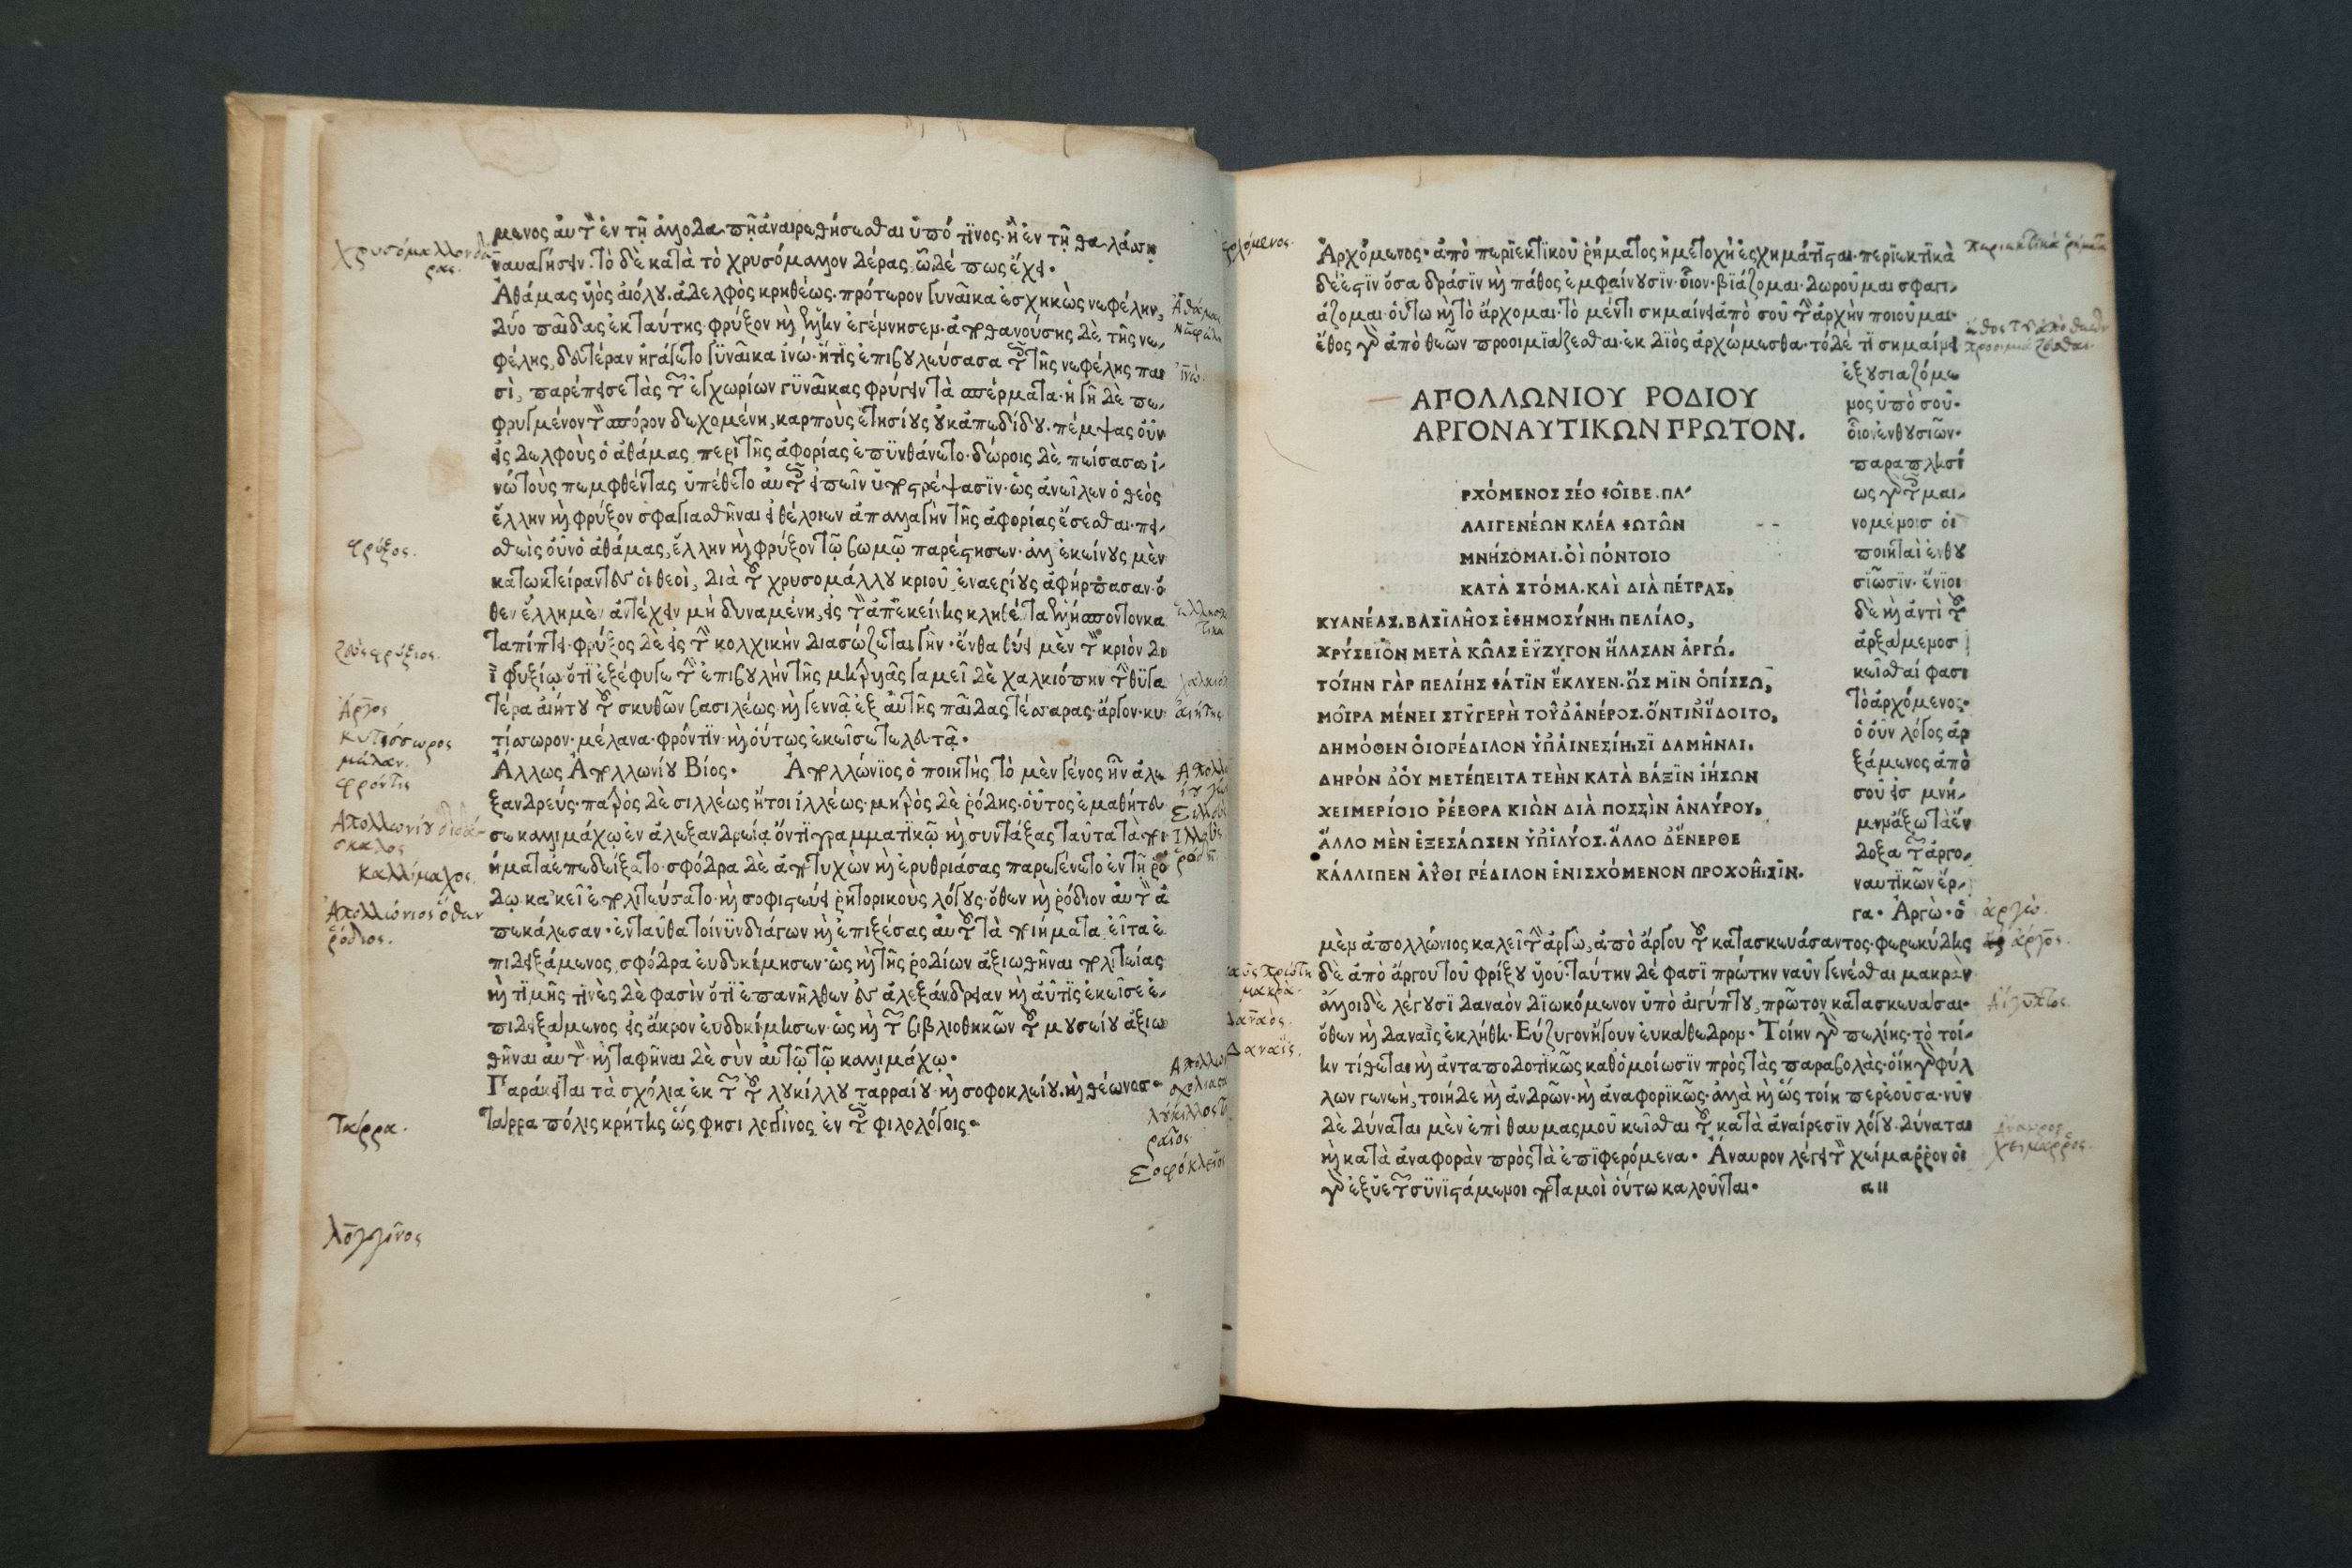 μενος αὐτὸν ἐν τῇ ἀλλοδαπῇ ἀναιρεθήσεσθαι ὑπό τινος· ἢ ἐν τῇ θαλάσσῃ
ναυαγήσειν. τὸ δὲ κατὰ τὸ χρυσόμαλλον δέρας, ὧδέ πως ἔχει·
Ἀθάμας υἱὸς αἰόλου. ἀδελφὸς κρηθέως. πρότερον γυναῖκα ἐσχηκὼς νεφέλην,
δύο παῖδας ἐκ ταύτης φρύξον καὶ ἕλλην ἐγέννησεν. ἀποθανούσης δὲ τῆς νε,
φέλης, δευτέραν ἠγάγετο γυναῖκα ἰνώ. ἥτις ἐπιβουλεύσασα τοῖς τῆς νεφέλης παι
σί, παρέπεισε τὰς τῶν ἐγχωρίων γυναῖκας φρύγειν τὰ σπέρματα. ἡ γῆ δὲ πε,
φρυγμένον τὸν σπόρον δεχομένη, καρποὺς ἐτησίους οὐκ ἀπεδίδου. πέμψας οὖν
εἰς δελφοὺς ὁ ἀθάμας, περὶ τῆς ἀφορίας ἐπυνθάνετο. δώροις δὲ πείσασα ἰ,
νὼ τοὺς πεμφθέντας ὑπέθετο αὐτοῖς εἰπεῖν ὑποστρέψασιν. ὡς ἀνεῖλεν ὁ θεὸς
ἕλλην καὶ φρύξον σφαγιασθῆναι εἰ θέλοιεν ἀπαλλαγὴν τῆς ἀφορίας ἔσεσθαι. πει
σθεὶς οὖν ὁ ἀθάμας, ἕλλην καὶ φρύξον τῷ βωμῷ παρέστησεν. ἀλλ' ἐκείνους μὲν
κατῳκτείραντες οἱ θεοὶ, διὰ τοῦ χρυσομάλλου κριοῦ, ἐναερίους ἀφήρπασαν. ὅ
ταπίπτει. φρύξος δὲ εἰς τὴν κολχικὴν διασώζεται γῆν. ἔνθα θύει μὲν τὸν κριὸν δι
ῒ φυξίῳ. ὅτι ἐξέφυγε τὴν ἐπιβουλὴν τῆς μητρυιᾶς γαμεῖ δὲ χαλκιόπην τὴν θυγα
τέρα αἰήτου τοῦ σκυθῶν βασιλέως. καὶ γεννᾷ ἐξ αὐτῆς παῖδας τέσσαρας. ἄργον. κυ
τίσωρον. μέλανα. φρόντιν. καὶ οὕτως ἐκεῖσε τελευτᾷ.
Ἄλλως Ἀπολλωνίου Βίος. Ἀπολλώνιος ὁ ποιητὴς τὸ μὲν γένος ἦν ἀλε
ξανδρεύς. πατρὸς δὲ σιλλέως ἤτοι ἰλλέως. μητρὸς δὲ ῥόδης. οὗτος ἐμαθήτευ
σε καλλιμάχῳ ἐν ἀλεξανδρείᾳ ὄντι γραμματικῷ καὶ συντάξας ταῦτα τὰ ποι
ήματα ἐπεδείξατο. σφόδρα δὲ ἀποτυχὼν καὶ ἐρυθριάσας παρεγένετο ἐν τῇ ῥό
δῳ κἀκεῖ ἐπολιτεύσατο. καὶ σοφιστεύει ῥητορικοὺς λόγους. ὅθεν καὶ ῥόδιον αὐτὸν ἀ
πεκάλεσαν. ἐνταῦθα τοίνυν διάγων καὶ ἐπιξέσας αὐτοῦ τὰ ποιήματα, εἶτα ἐ
πιδειξάμενος, σφόδρα εὐδοκίμησεν. ὡς καὶ τῆς ῥοδίων ἀξιωθῆναι πολιτείας
καὶ τιμῆς. τινὲς δέ φασιν ὅτι ἐπανῆλθεν ἐν ἀλεξάνδρειαν καὶ αὖτις ἐκεῖσε ἐ,
πιδειξάμενος εἰς ἄκρον εὐδοκίμησεν. ὡς καὶ τῶν βιβλιοθηκῶν τοῦ μουσείου ἀξιω
θῆναι αὐτὸν. καὶ ταφῆναι δὲ σὺν αὐτῷ τῷ καλλιμάχῳ.
Παράκειται τὰ σχόλια ἐκ τῶν τοῦ λυκίλλου ταρραίου. καὶ σοφοκλείου. καὶ θέωνος.
Τάρρα πόλις κρήτης ὥς φησι λογγῖνος ἐν τοῖς φιλολόγοις.
φρύξος.
Ζεὺς φύξιος.
Ἄργος
κυτίσσωρος
μέλαν.
φρόντις
Ἀπολλωνίου διδά-
σκαλος
Καλλίμαχος.
Ἀπολλώνιος ὅθεν
ῥόδιος.
Τάρρα.
λογγῖνος
Ἀρχόμενος. ἀπὸ περιεκτικοῦ ῥήματος ἡ μετοχὴ ἐσχημάτισται. περιεκτικὰ
δέ ἐστιν ὅσα δράσιν καὶ πάθος ἐμφαίνουσιν. οἷον. βιάζομαι. δωροῦμαι σφαγι,
άζομαι. οὕτω καὶ τὸ ἄρχομαι. τὸ μέντι σημαίνει ἀπὸ σοῦ τὴν ἀρχὴν ποιοῦμαι.
ἔθος γὰρ ἀπὸ θεῶν προοιμιάζεσθαι. ἐκ διὸς ἀρχώμεσθα. τὸ δέ τι σημαίνει
ἐξουσιαζόμε
μος ὑπὸ σοῦ.
οἷον ἐνθουσιῶν.
παραπλησί
ως γὰρ τοῖς μαι,
νομένοις οἱ
ποιηταὶ ἐνθου
σιῶσιν. ἔνιοι
δὲ καὶ ἀντὶ τοῦ
ἀρξάμενος
κεῖσθαί φασι
τὸ ἀρχόμενος.
ὁ οὖν λόγος ἀρ
ξάμενος ἀπὸ
σοῦ εἰς μνή,
μην ἄξω τὰ ἔν
δοξα τῶν ἀργο,
ναυτικῶν ἔρ,
γα. Ἀργὼ. ὁ
ΑΠΟΛΛΩΝΙΟΥ ΡΟΔΙΟΥ
ΑΡΓΟΝΑΥΤΙΚΩΝ ΠΡΩΤΟΝ.
ΡΧΌΜΕΝΟΣ ΣΈΟ ΦΟῖΒΕ. ΠΑ
ΛΑΙΓΕΝΈΩΝ ΚΛΈΑ ΦΩΤΩ͂Ν
ΜΝΉΣΟΜΑΙ. ΟἹ ΠΌΝΤΟΙΟ
ΚΑΤᾺ ΣΤΌΜΑ. ΚΑῚ ΔΙᾺ ΠΈΤΡΑΣ,
ΚΥΑΝΈΑΣ. ΒΑΣΙΛΗ͂ΟΣ ἘΦΗΜΟΣΎΝΗΙ ΠΕΛΊΑΟ,
ΧΡΎΣΕΙΟΝ ΜΕΤᾺ ΚΩ͂ΑΣ ἘΎΖΥΓΟΝ ἬΛΑΣΑΝ ἈΡΓΏ.
ΤΟΊΗΝ ΓᾺΡ ΠΕΛΊΗΣ ΦΆΤΙΝ ἜΚΛΥΕΝ. ὭΣ ΜΙΝ ὈΠΊΣΣΩ,
ΜΟΙ͂ΡΑ ΜΈΝΕΙ ΣΤΥΓΕΡῊ ΤΟΥ͂ΔἈΝΈΡΟΣ. ὍΝΤΙΝΊΔΟΙΤΟ,
ΔΗΜΌΘΕΝ ὉΙΟΠΈΔΙΛΟΝ ὙΠΑΙΝΕΣΊΗΙΣΙ ΔΑΜΗ͂ΝΑΙ.
ΔΗΡΌΝ ΔΌΥ ΜΕΤΈΠΕΙΤΑ ΤΕῊΝ ΚΑΤᾺ ΒΆΞΙΝ ἸΉΣΩΝ
ΧΕΙΜΕΡΊΟΙΟ ῬΈΕΘΡΑ ΚΙῺΝ ΔΙᾺ ΠΟΣΣῚΝ ἈΝΑΎΡΟΥ,
ἌΛΛΟ ΜῈΝ ἘΞΕΣΆΩΣΕΝ ὙΠΙΛΎΟΣ. ἌΛΛΟ ΔΈΝΕΡΘΕ
ΚΆΛΛΙΠΕΝ ἈΥ͂ΘΙ ΠΈΔΙΛΟΝ ἘΝΙΣΧΌΜΕΝΟΝ ΠΡΟΧΟΗ͂ΙΣΙΝ.
μὲν ἀπολλώνιος καλεῖ τὴν ἀργὼ, ἀπὸ ἄργου τοῦ κατασκευάσαντος. φερεκύδης
δὲ ἀπὸ ἄργου τοῦ φρίξου υἱοῦ. ταύτην δέ φασι πρώτην ναῦν γενέσθαι μακρὰν
ἄλλοι δὲ λέγουσι δαναὸν διωκόμενον ὑπὸ αἰγύπτου, πρῶτον κατασκευάσαι.
ὅθεν καὶ δαναῒς ἐκλήθη. Εὔζυγον ἤγουν εὐκάθεδρον. Τοίην γὰρ πελίης. τὸ τοί,
ην τίθεται καὶ ἀνταποδοτικῶς καθ' ὁμοίωσιν πρὸς τὰς παραβολὰς. οἵη γὰρ φύλ
λων γενεὴ, τοιήδε καὶ ἀνδρῶν. καὶ ἀναφορικῶς. ἀλλὰ καὶ ὣς τοίη περ ἐοῦσα. νῦν
δὲ δύναται μὲν ἐπὶ θαυμασμοῦ κεῖσθαι τοῦ κατὰ ἀναίρεσιν λόγου. δύναται
καὶ κατὰ ἀναφορὰν πρὸς τὰ ἐπιφερόμενα. Ἄναυρον λέγει τὸν χείμαρρον οἱ
γὰρ ἐξ ὑετῶν συνιστάμενοι ποταμοὶ οὕτω καλοῦνται. αιι
ἀργώ.
ἄργος.
Αἴγυπτος.
Δαναὸς.
Δαναΐς.
Ἄναυρος
χείμαρρος.